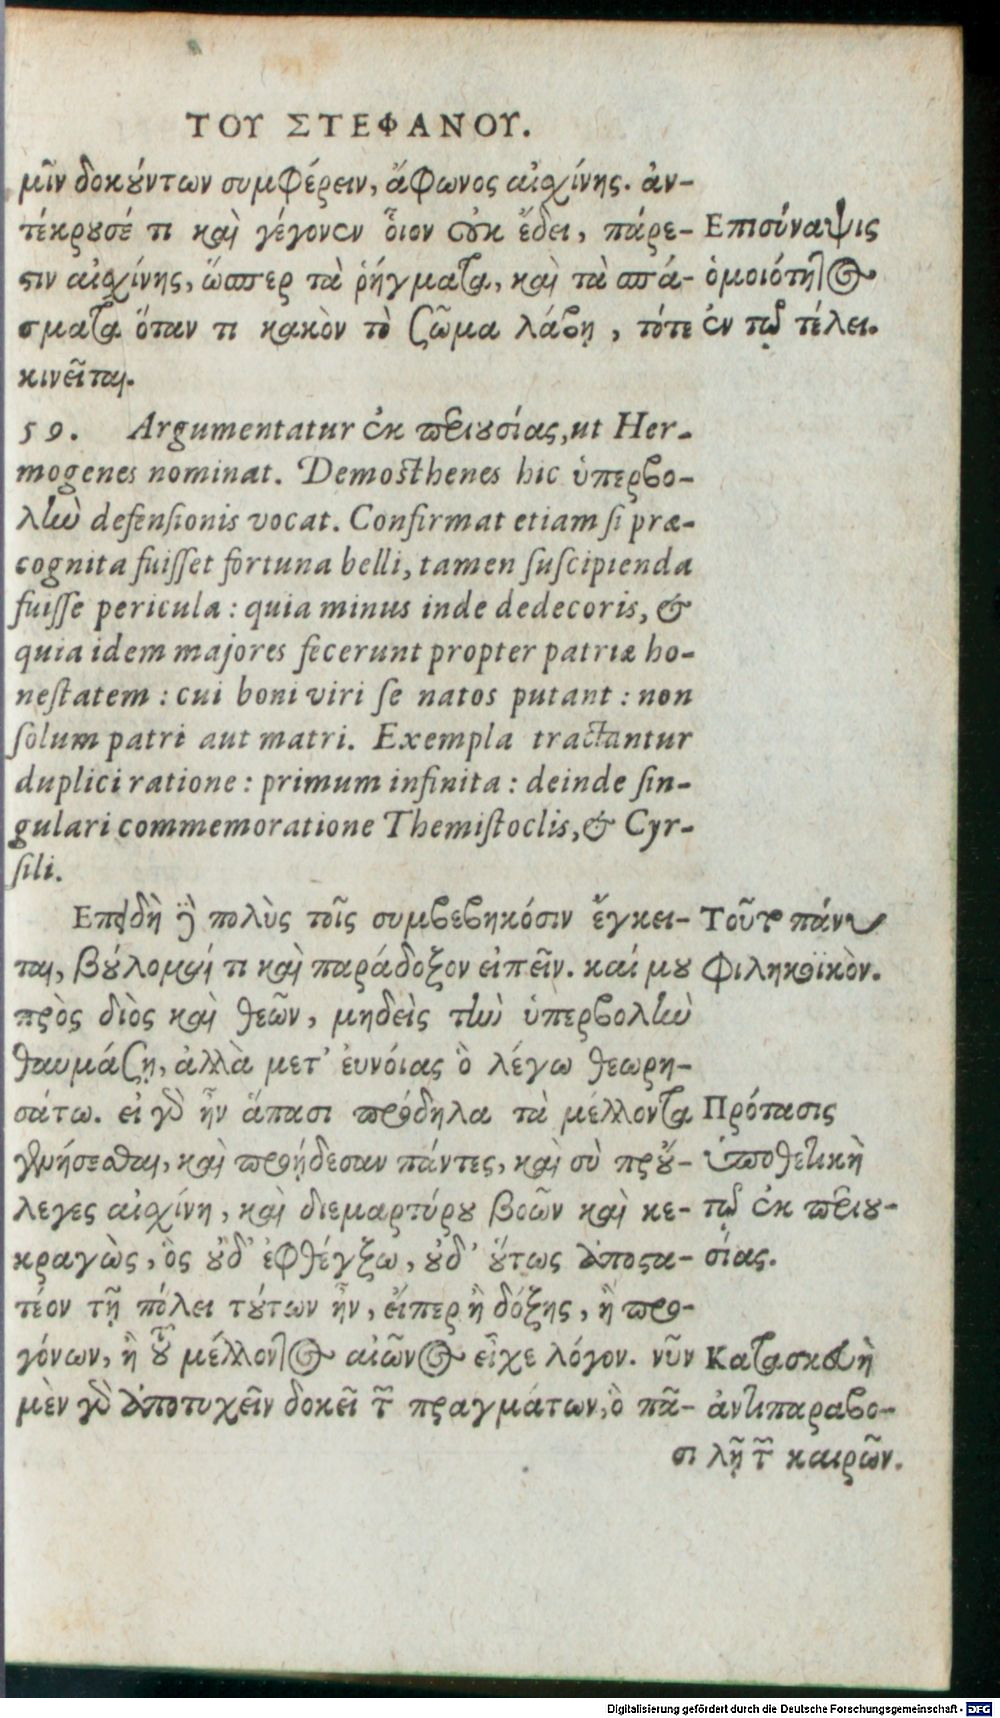 ΤΟΥ ΣΤΕΦΑΝΟΥ.
μῖν δοκούντων συμφέρειν, ἄφωνος αἰσχίνης. ἀν-
τέκρουσέ τι καὶ γέγονεν ὅιον οὐκ ἔδει, πάρε-
στιν αἰσχίνης, ὥσπερ τὰ ῥήγματα, καὶ τὰ σπά-
σματα ὅταν τι κακὸν τὸ ζῶμα λάβῃ, τότε
κινεῖται.
Επισύναψις
ὁμοιότητος
ἐν τῷ τέλει.
59. Argumentatur ἐκ περιουσίας, ut Her-
mogenes nominat. Demosthenes hic ὑπερβο-
λὴν defensionis vocat. Confirmat etiam si præ-
cognita fuisset fortuna belli, tamen suscipienda
fuisse pericula: quia minus inde dedecoris, &
quia idem majores fecerunt propter patriæ ho-
nestatem: cui boni viri se natos putant: non
solum patri aut matri. Exempla tractantur
duplici ratione: primum infinita: deinde sin-
gulari commemoratione Themistoclis, & Cyr-
sili.
Επειδὴ δὲ πολὺς τοῖς συμβεβηκόσιν ἔγκει-
ται, βούλομαί τι καὶ παράδοξον εἰπεῖν. καί μου
πρὸς διὸς καὶ θεῶν, μηδεὶς τὴν ὑπερβολὴν
θαυμάζῃ, ἀλλὰ μετ' ἐυνόιας ὃ λέγω θεωρη-
σάτω. εἰ γὰρ ἦν ἅπασι πρόδηλα τὰ μέλλοντα
γενήσεσθαι, καὶ προῄδεσαν πάντες, καὶ σὺ πρού-
λεγες αἰσχίνη, καὶ διεμαρτύρου βοῶν καὶ κε-
κραγὼς, ὃς οὐδ' ἐφθέγξω, οὐδ' οὕτως ἀποστα-
τέον τῇ πόλει τούτων ἦν, εἴπερ ἢ δόξης, ἢ προ-
γόνων, ἢ τοῦ μέλλοντος αἰῶνος εἶχε λόγον. νῦν
μὲν γὰρ ἀποτυχεῖν δοκεῖ τῶν πραγμάτων, ὃ πᾶ-
σι
Τοῦτο πάνυ
φιληκοϊκὸν.
Πρότασις
ὑποθετικὴ
τῷ ἐκ περιου-
σίας.
Κατασκευὴ
ἀντιπαραβο-
λῇ τῶν καιρῶν.
Digitalisierung gefördert durch die Deutsche Forschungsgemeinschaft - DFG